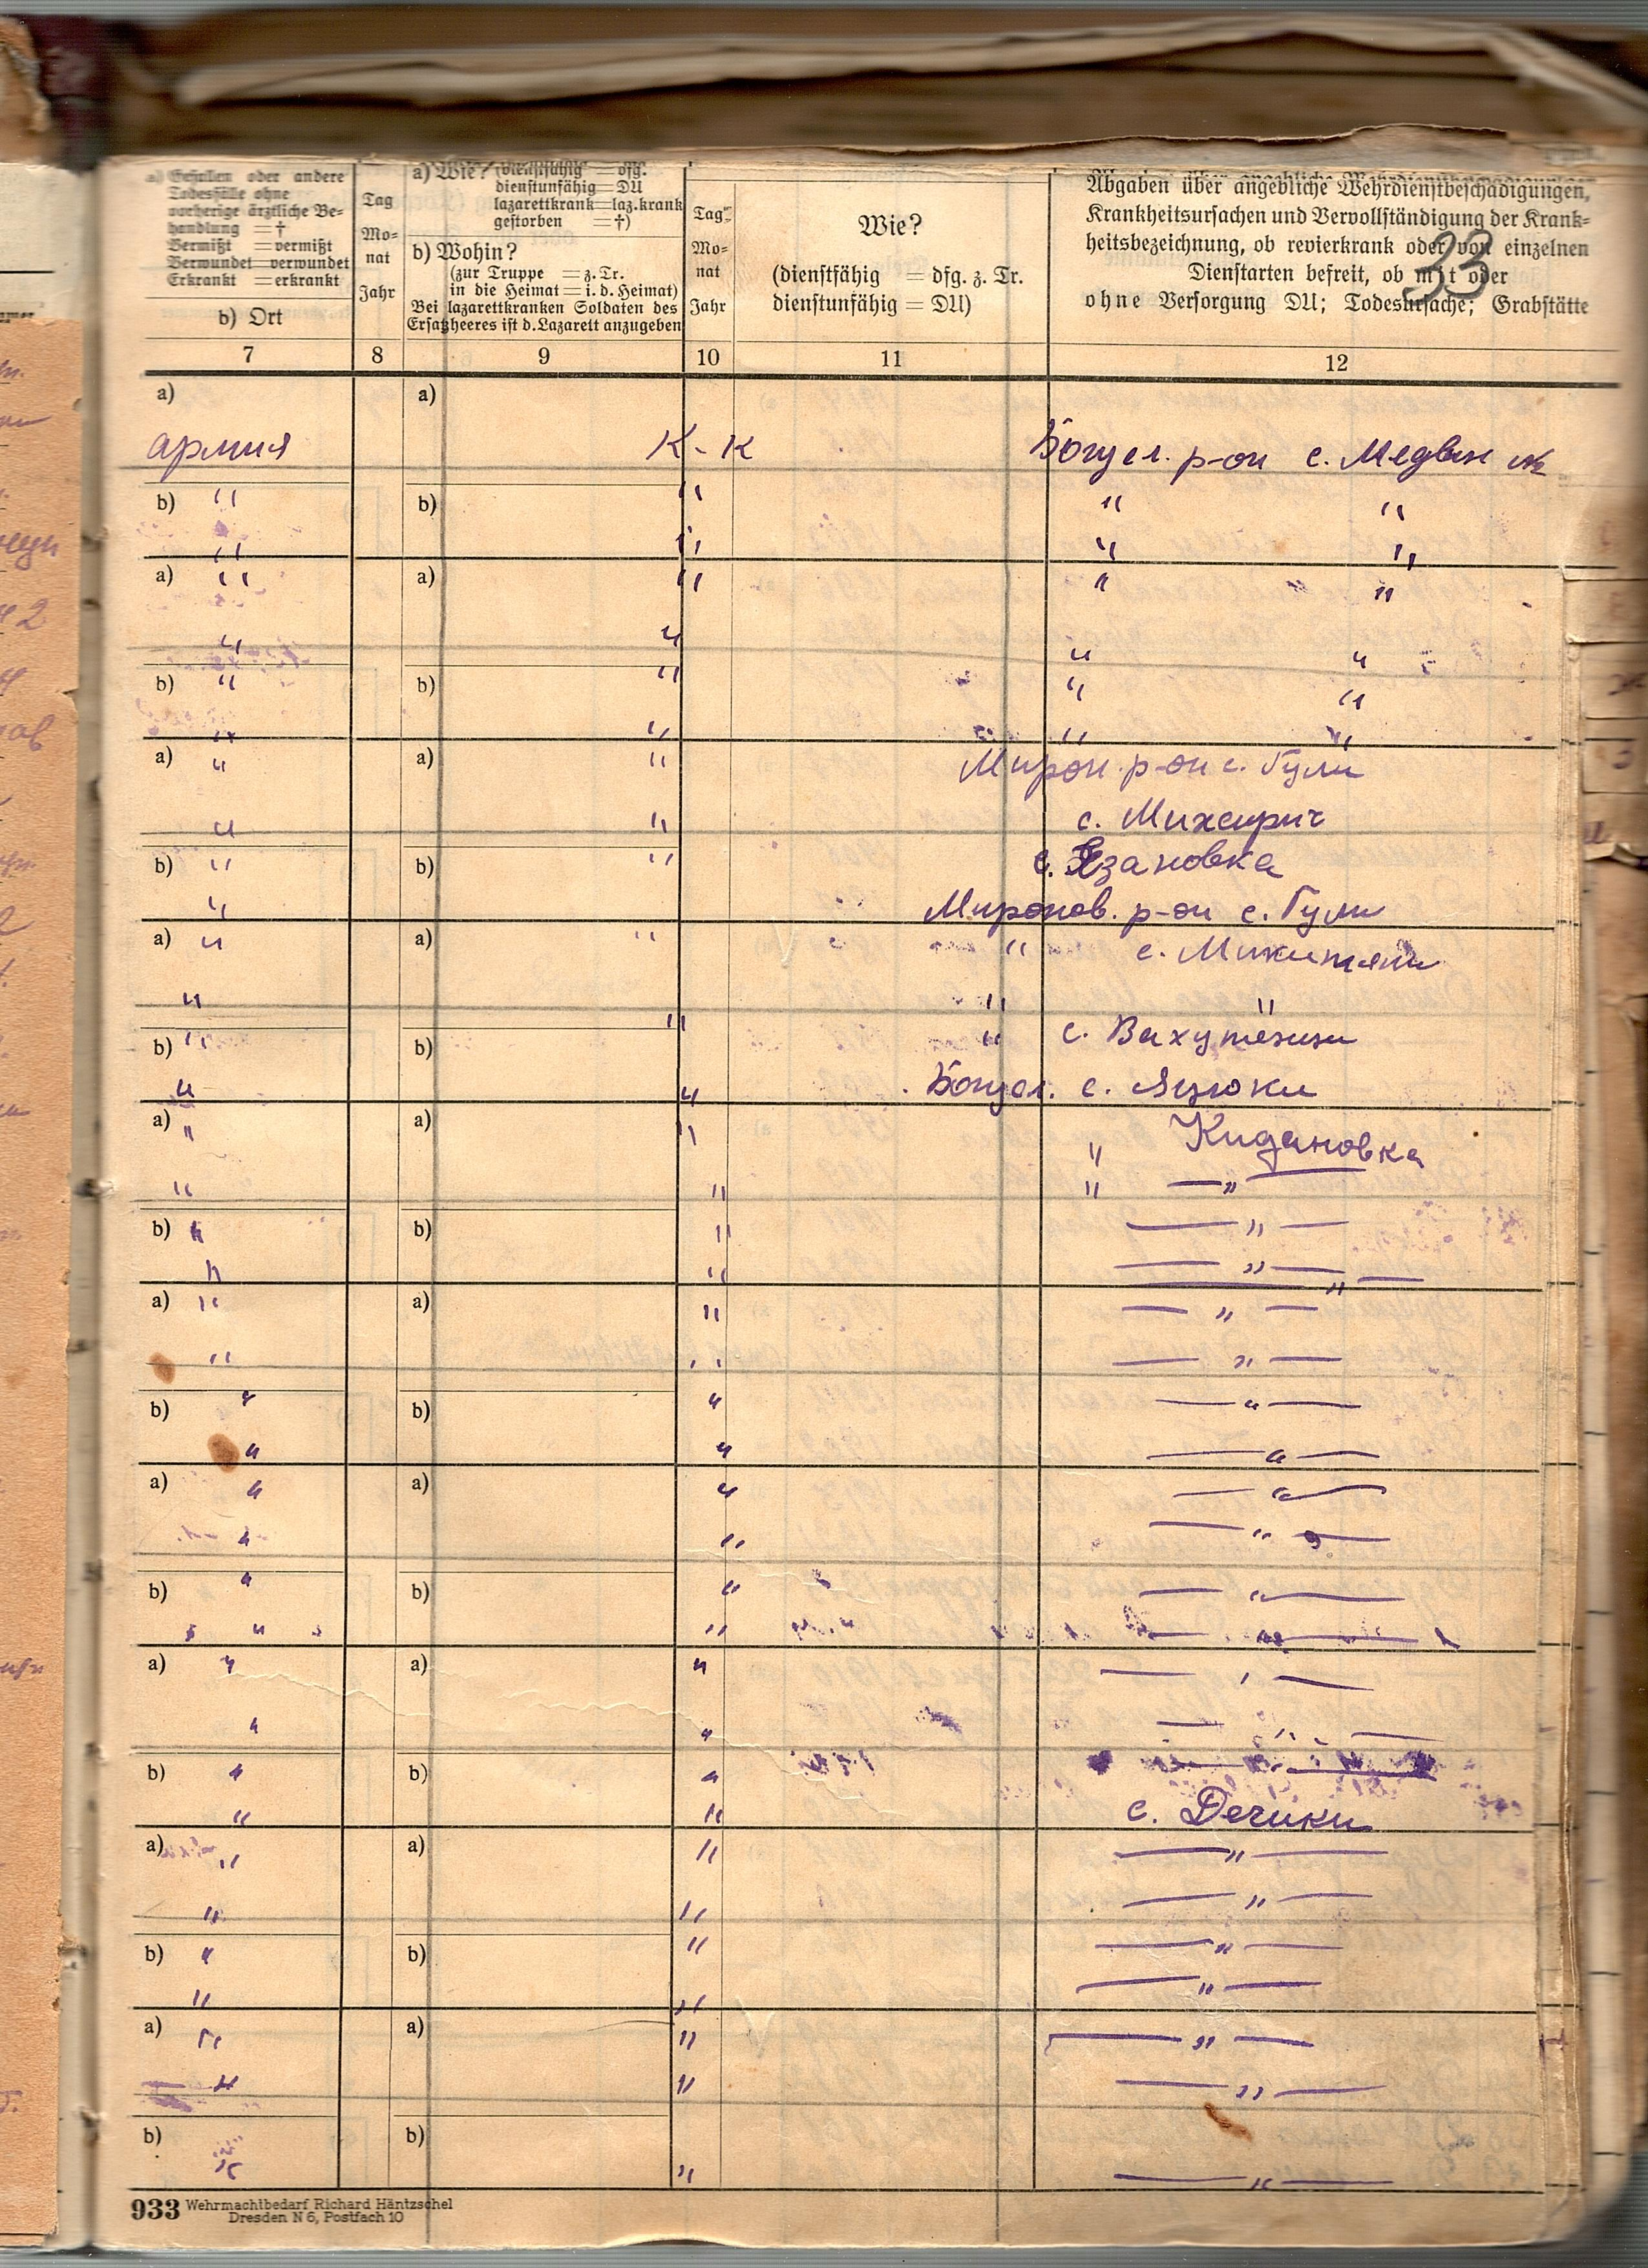 a) Gefallen oder andere Todesfälle ohne vorherige ärztliche Be-
handlung = †
Vermißt = vermißt
Verwundet = verwundet
Erkrankt = erkrankt
b) Ort
Tag
Mo-
nat
Jahr
a) Wie? (dienstfähig = dfg.
dienstunfähig = DU
lazarettkrank = laz.krank
gestorben = †)
b) Wohin?
(zur Truppe = z. Tr.
in die Heimat = i. d. Heimat)
Bei lazarettkranken Soldaten des
Ersatzheeres ist d. Lazarett anzugeben
Tag
Mo-
nat
Jahr
Wie?
(dienstfähig = dfg. z. Tr.
dienstunfähig = DU)
Abgaben über angebliche Wehrdienstbeschädigungen,
Krankheitsursachen und Vervollständigung der Krank-
heitsbezeichnung, ob revierkrank oder von einzelnen
Dienstarten befreit, ob mit oder
ohne Versorgung DU; Todesursache; Grabstätte
33
7 8 9 10 11 12
a) a)
армия К-К Богусл. р-он с. Медвин
b) " b) " " "
" " " "
a) " a) " " "
" " " "
b) " b) " " "
" " " "
a) " a) " Мирон. р-он с. Гули
" " с. Михеирич
b) " b) " с. Езановка
" Миронов. р-он с. Гули
a) " a) " " с. Микитяни
" " "
b) " b) " " с. Вахутёнци
" " Богусл. с. Яцюки
a) " a) " " Кидановка
" " " — " —
b) " b) " — " —
" " — " —
a) " a) " — " —
" " — " —
b) " b) " — " —
" " — " —
a) " a) " — " —
" " — " —
b) " b) " — " —
" " — " —
a) " a) " — " —
" " — " —
b) " b) " — " —
" " с. Дечики
a) " a) " — " —
" " — " —
b) " b) " — " —
" " — " —
a) " a) " — " —
" " — " —
b) b)
" " — " —
933 Wehrmachtbedarf Richard Häntzschel
Dresden N 6, Postfach 10